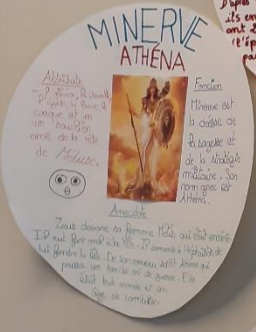 MINERVE
ATHÉNA
Attributs
la chouette,
l'égide, la lance, le
casque et un
un bouclier
orné de la tête
de Méduse.
Fonction
Minerve est
la déesse de
la sagesse et
de la stratégie
militaire. Son
nom grec est
Athéna.
Anecdote
Zeus dévora sa femme Métis qui était enceinte
Il eut fort mal à la tête. Il demanda à Héphaïstos de
lui fendre la tête. De son cerveau sortit Athéna qui
poussa un terrible cri de guerre. Elle
était tout armée et en
âge de combattre.
D'après
ils en
ont